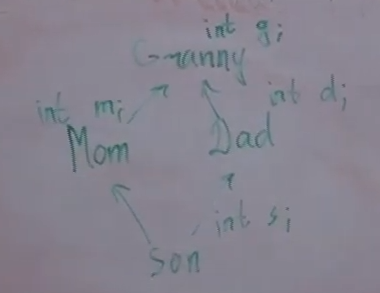 int g;
Granny
int m;
int d;
Mom
Dad
int s;
Son